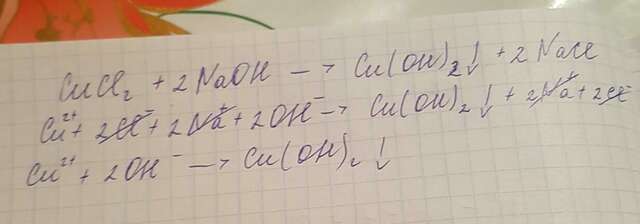 CuCl₂ + 2NaOH → Cu(OH)₂↓ + 2NaCl
Cu²⁺ + 2Cl⁻ + 2Na⁺ + 2OH⁻ → Cu(OH)₂↓ + 2Na⁺ + 2Cl⁻
Cu²⁺ + 2OH⁻ → Cu(OH)₂↓